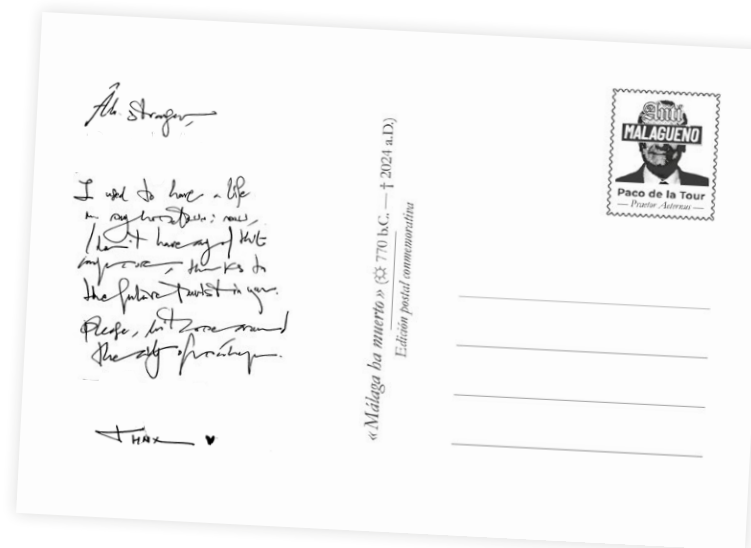 Ah stranger,
I used to have a life
in my hometown: now,
I don't have any of that
anymore, thanks to
the future tourist in you.
please, don't come around
the city of málaga.
THAX ♥
«Málaga ha muerto» (770 b.C. — † 2024 a.D.)
Edición postal conmemorativa
Anti
MALAGUEÑO
Paco de la Tour
— Praetor Aeternus —